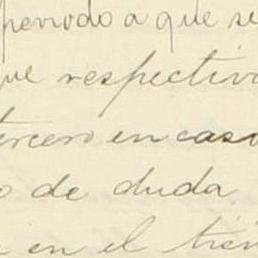 periodo a que se
que respectiva
tercero en caso
o de duda
en el tiem